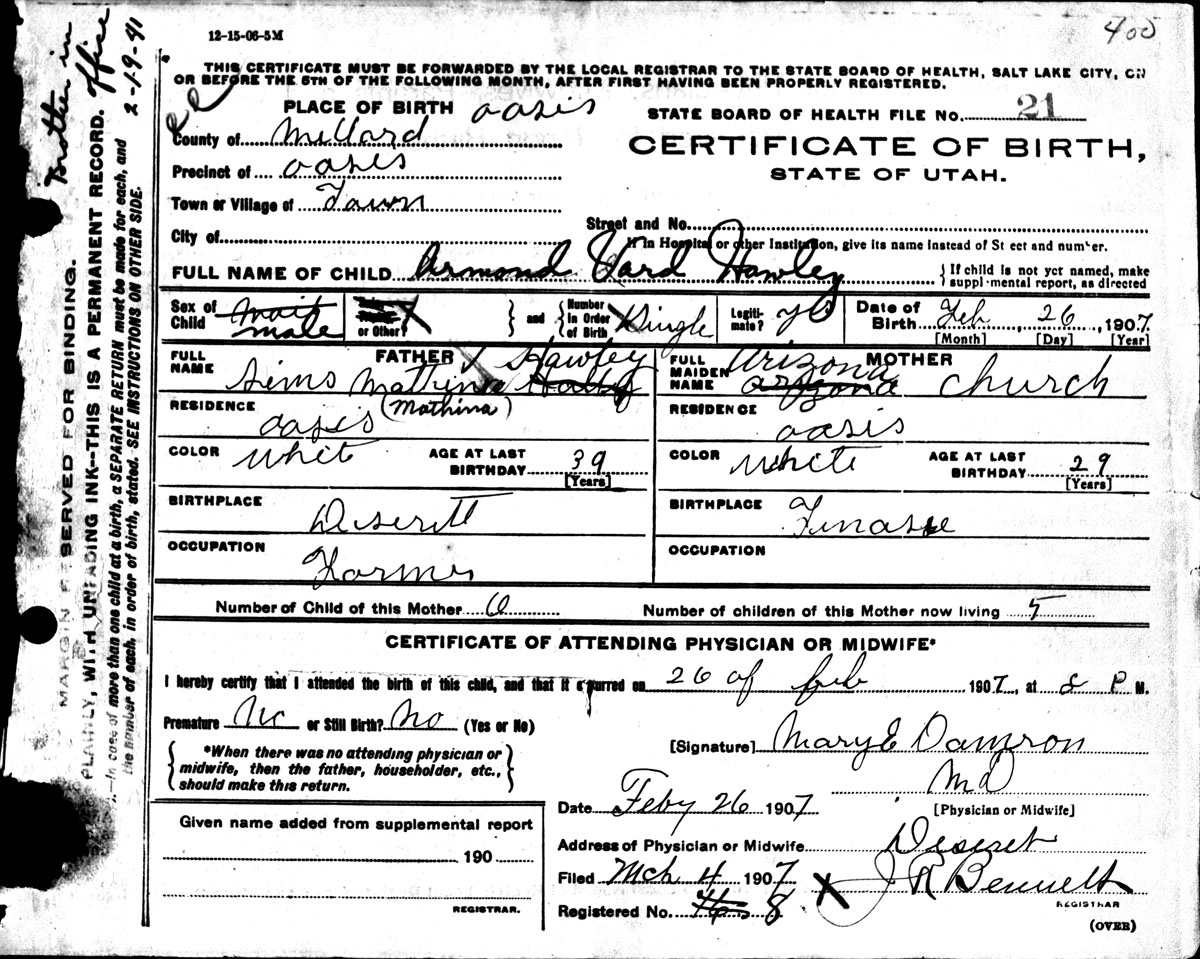 400
12-15-06-5M
THIS CERTIFICATE MUST BE FORWARDED BY THE LOCAL REGISTRAR TO THE STATE BOARD OF HEALTH, SALT LAKE CITY, ON
OR BEFORE THE 5TH OF THE FOLLOWING MONTH, AFTER FIRST HAVING BEEN PROPERLY REGISTERED.
PLACE OF BIRTH oasis
STATE BOARD OF HEALTH FILE No. 21
County of Millard
CERTIFICATE OF BIRTH,
Precinct of oases
STATE OF UTAH.
Town or Village of Town
Street and No.
City of
If in Hospital or other Institution, give its name instead of Street and number.
FULL NAME OF CHILD Armond Vard Hawley
{ If child is not yet named, make supplemental report, as directed
Sex of Child male
or Other? X } and { Number in Order of Birth X Single
Legitimate? yes
Date of Birth Feb, 26, 1907
[Month] [Day] [Year]
FATHER
FULL NAME Sims Mathina Hawley
(Mathina)
RESIDENCE oasis
COLOR White AGE AT LAST BIRTHDAY 39
[Years]
BIRTHPLACE Diseritt
OCCUPATION Farmer
MOTHER
FULL MAIDEN NAME Arizona Church
RESIDENCE oasis
COLOR White AGE AT LAST BIRTHDAY 29
[Years]
BIRTHPLACE
OCCUPATION
Number of Child of this Mother 6 Number of children of this Mother now living 5
CERTIFICATE OF ATTENDING PHYSICIAN OR MIDWIFE*
I hereby certify that I attended the birth of this child, and that it occurred on 26 of feb 1907, at 8 P M.
Premature No or Still Birth? No (Yes or No)
{ *When there was no attending physician or
midwife, then the father, householder, etc.,
should make this return. }
[Signature] Mary E Damron
Md
[Physician or Midwife]
Date Feby 26 1907
Given name added from supplemental report
190
REGISTRAR.
Address of Physician or Midwife Deseret
Filed Mch 4 1907 X J R Bennett
REGISTRAR
Registered No. 8
(OVER)
Brother in office
2-19-41
MARGIN RESERVED FOR BINDING.
PLAINLY, WITH UNFADING INK--THIS IS A PERMANENT RECORD.
--In case of more than one child at a birth, a SEPARATE RETURN must be made for each, and
the number of each, in order of birth, stated. SEE INSTRUCTIONS ON OTHER SIDE.